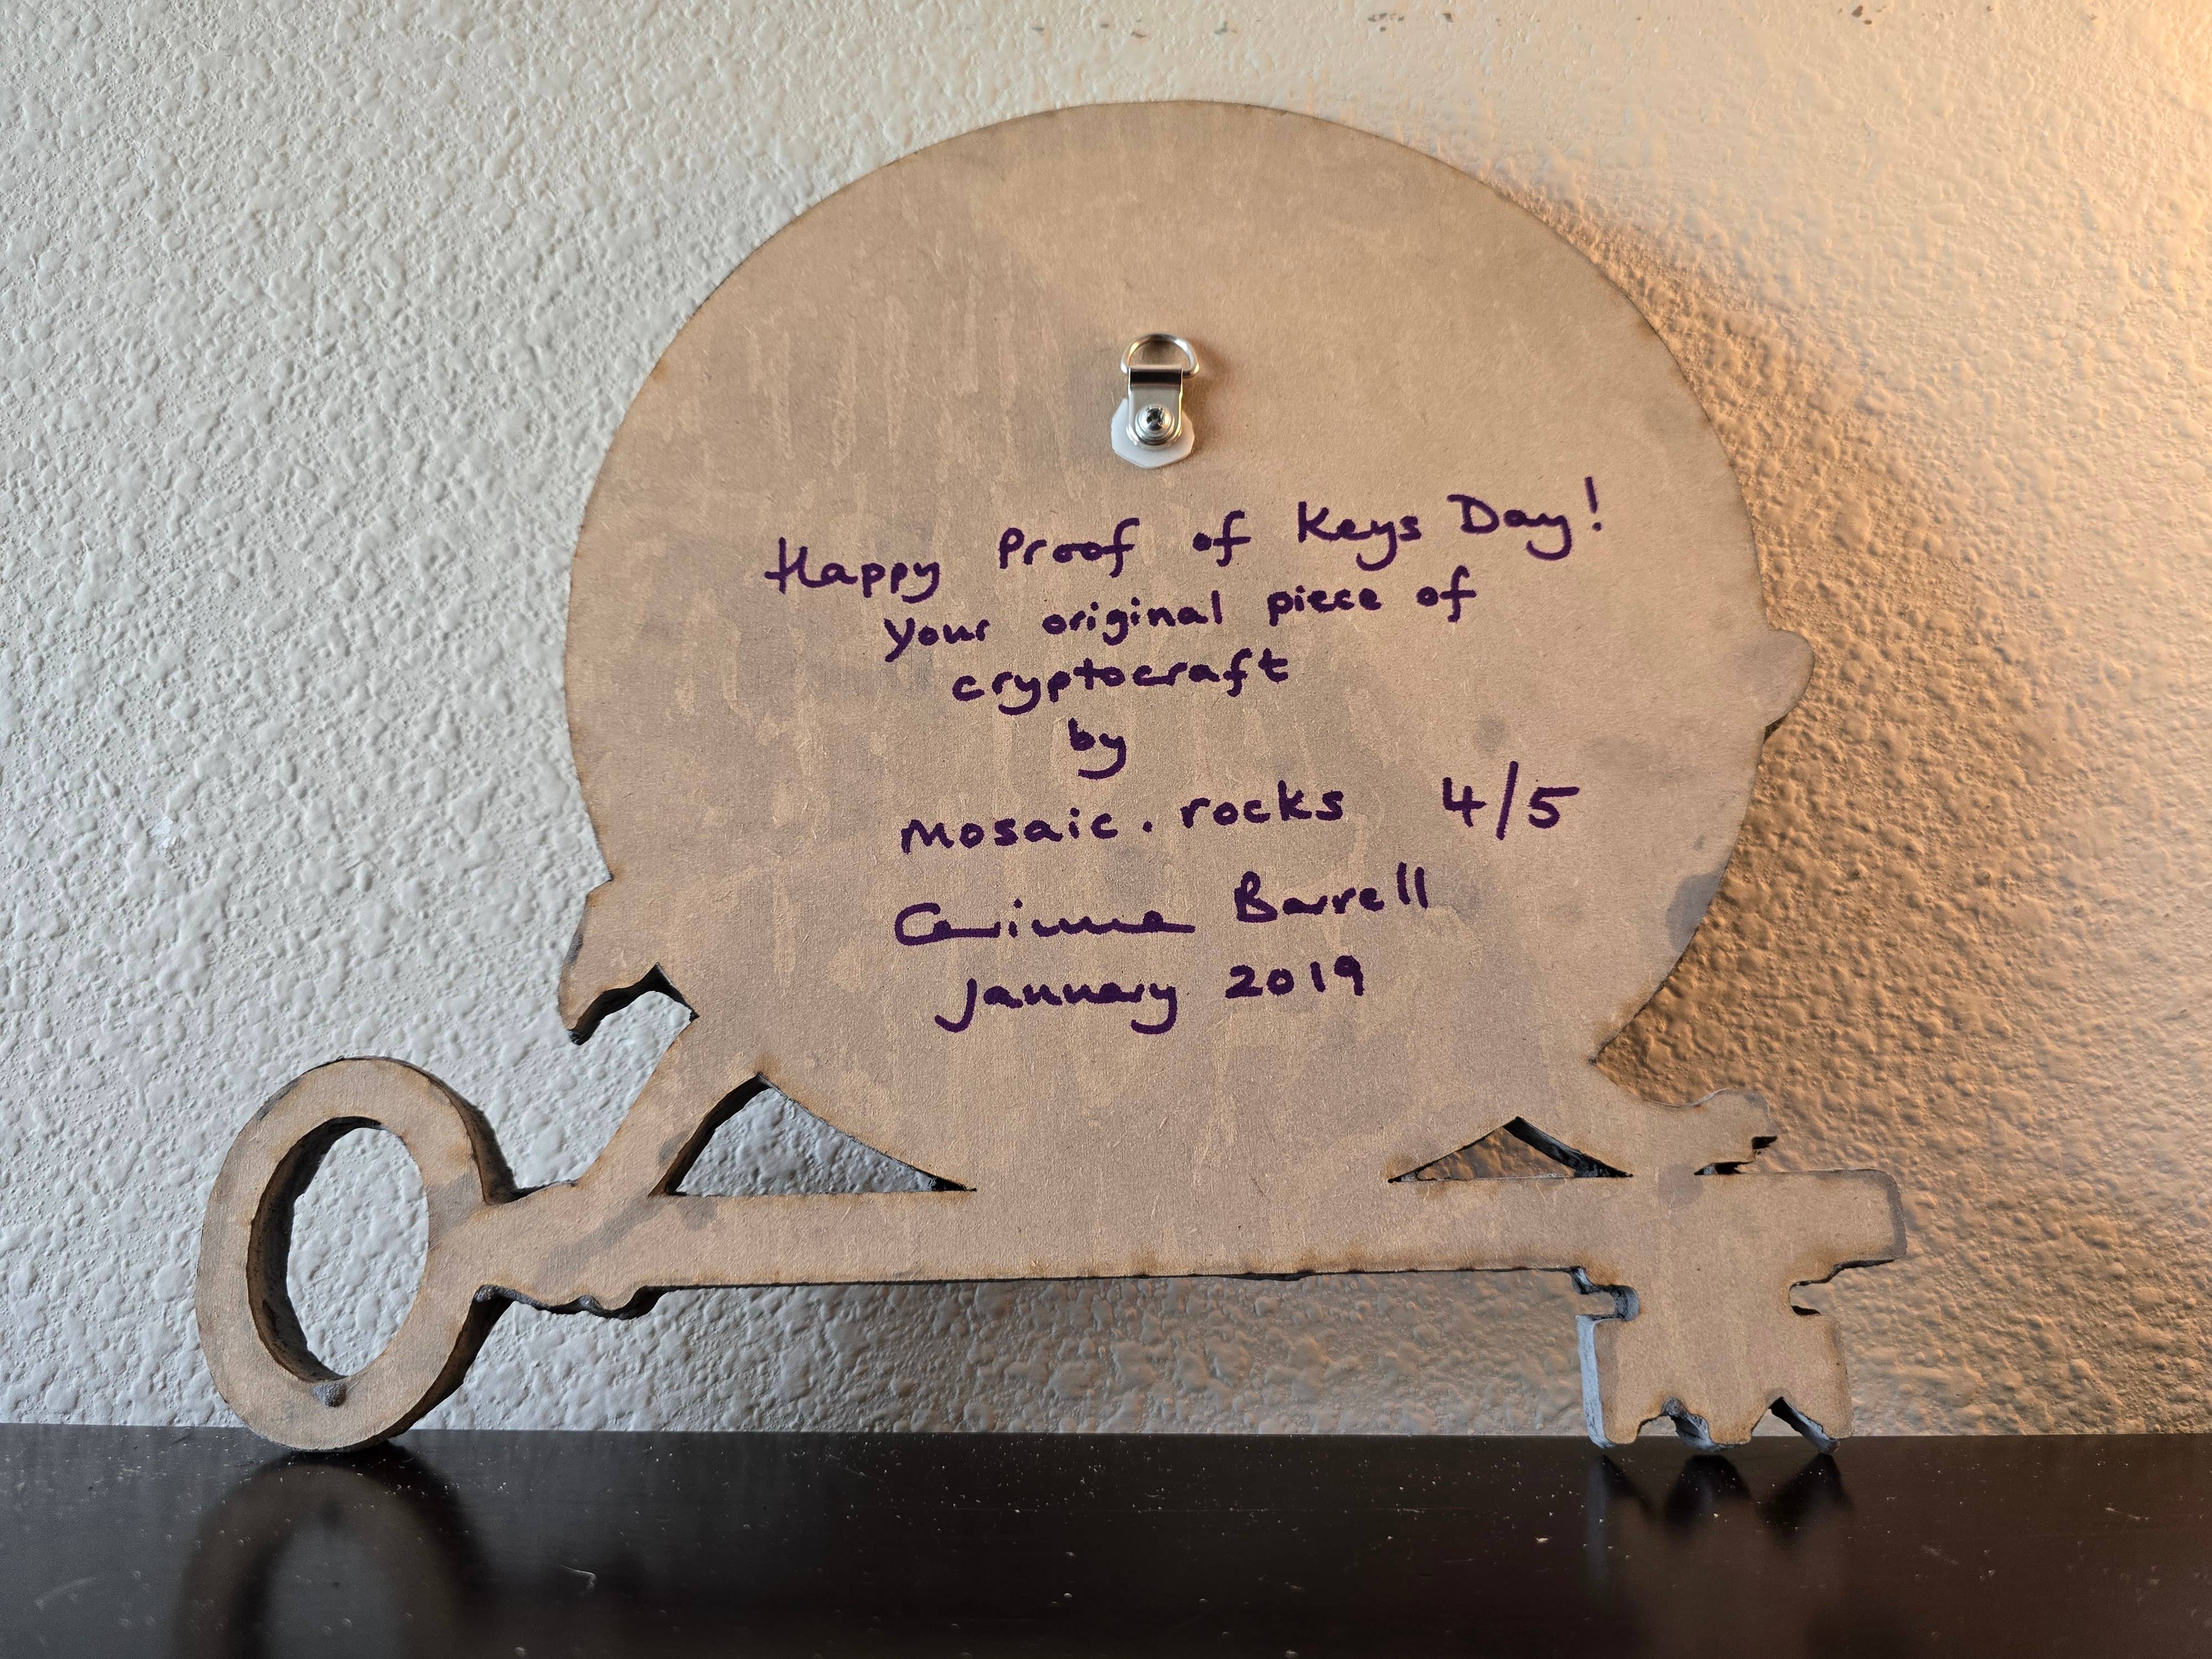 Happy Proof of Keys Day!
Your original piece of
cryptocraft
by
mosaic.rocks 4/5
Corinne Barrell
January 2019